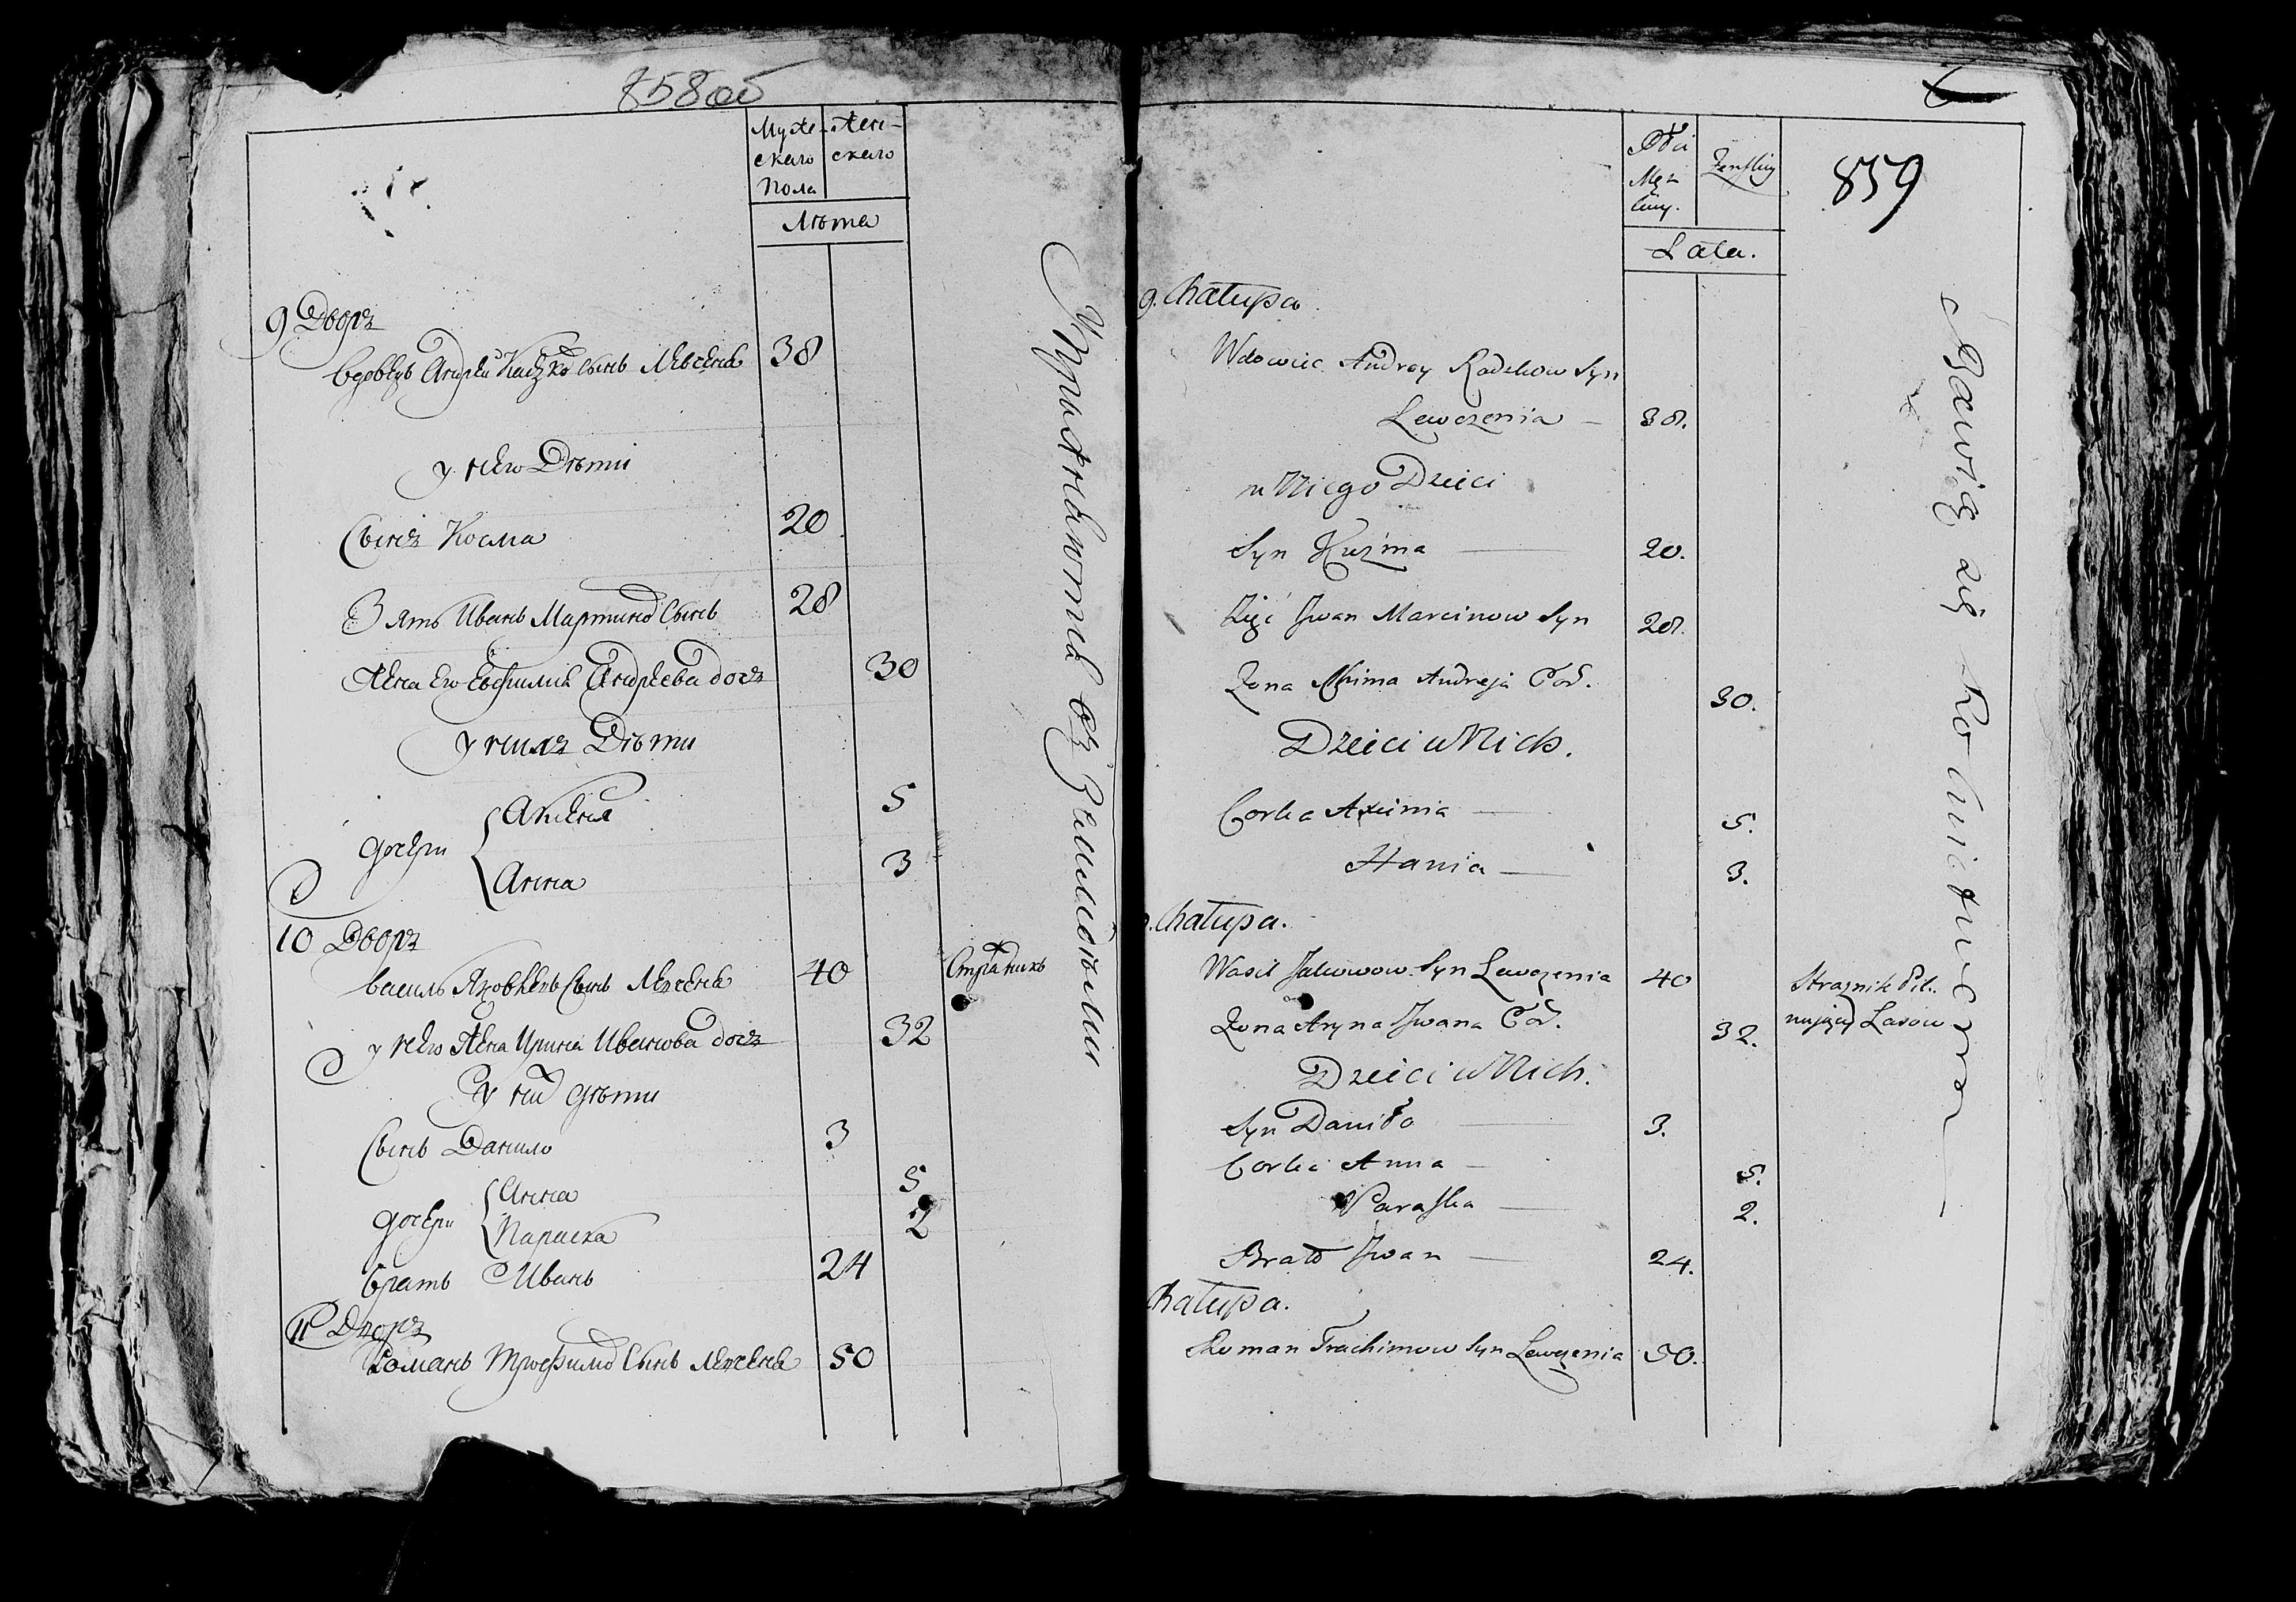 858об
Муже- Жен-
скаго скаго
Пола
Лѣта
9 Дворъ
Вдовецъ Андрей Радко Сынъ Левченя 38
у него Дѣти
Сынъ Косма 20
Зять Иванъ Мартино Сынъ 28
Жена его Евфимия Андреева дочь 30
у нихъ Дѣти
Дочери
Аксеня 5
Анна 3
10 Дворъ
Василь Яковлевъ Сынъ Левченя 40 Стражникъ
у него Жена Ирина Иванова дочь 32
у них дѣти
Сынъ Данило 3
дочери
Анна 5
Параска 2
братъ Иванъ 24
11 Дворъ
Романъ Трофимо Сынъ Левченя 50
Упражняются въ Земледѣлии
859
Płci
Męz
kiey.
Żenskiey
Lata.
9. Chałupa
Wdowiec Andrey Radzkow Syn
Lewczenia – 38.
u Niego Dzieci
Syn Kuźma 20.
Zięć Jwan Marcinow Syn 28.
Żona Chima Andreja Cor. 30.
Dzieci u Nich.
Corka Axinia 5.
Hania 3.
Chałupa.
Wasil Jakowow Syn Lewczenia 40 Straznik Pil-
nujący Lasow
Żona Aryna Jwana Cor. 32.
Dzieci u Nich.
Syn Daniło 3.
Corka Anna 5.
Paraska 2.
Brat Jwan 24.
Chałupa.
Roman Trachimow Syn Lewczenia 50.
Bawią się Rolnictwem